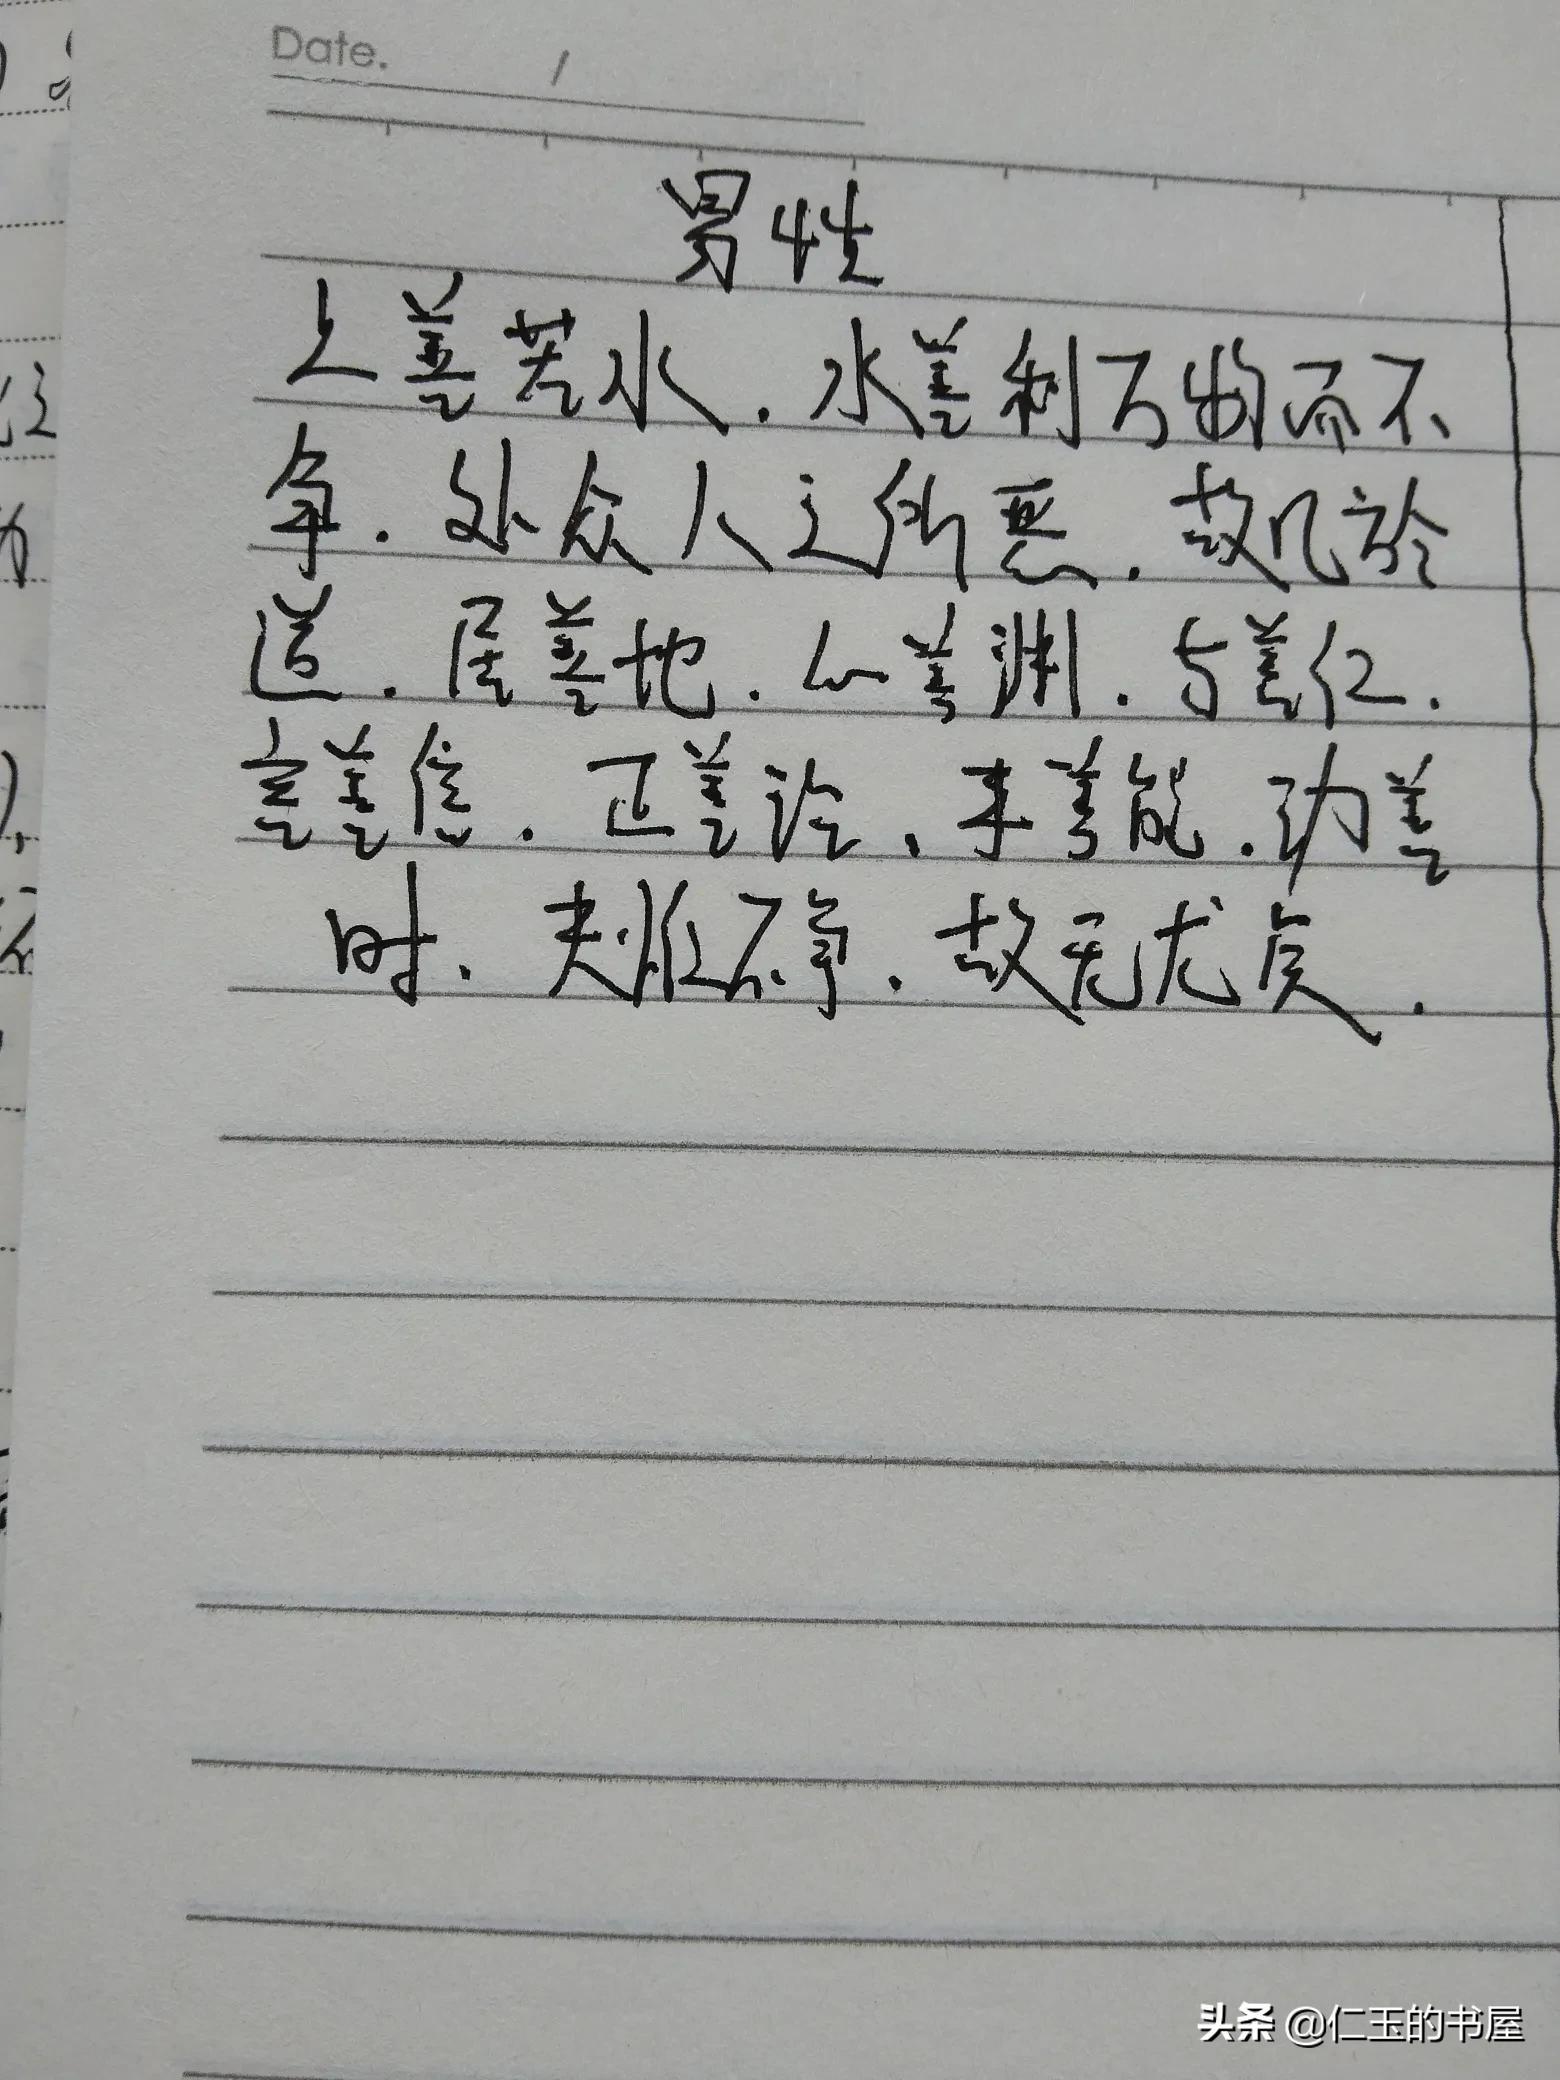 Date. /
易性
上善若水.水善利万物而不
争.处众人之所恶.故几於
道.居善地.心善渊.与善仁.
言善信.正善治.事善能.动善
时.夫惟不争.故无尤矣.
头条 @仁玉的书屋